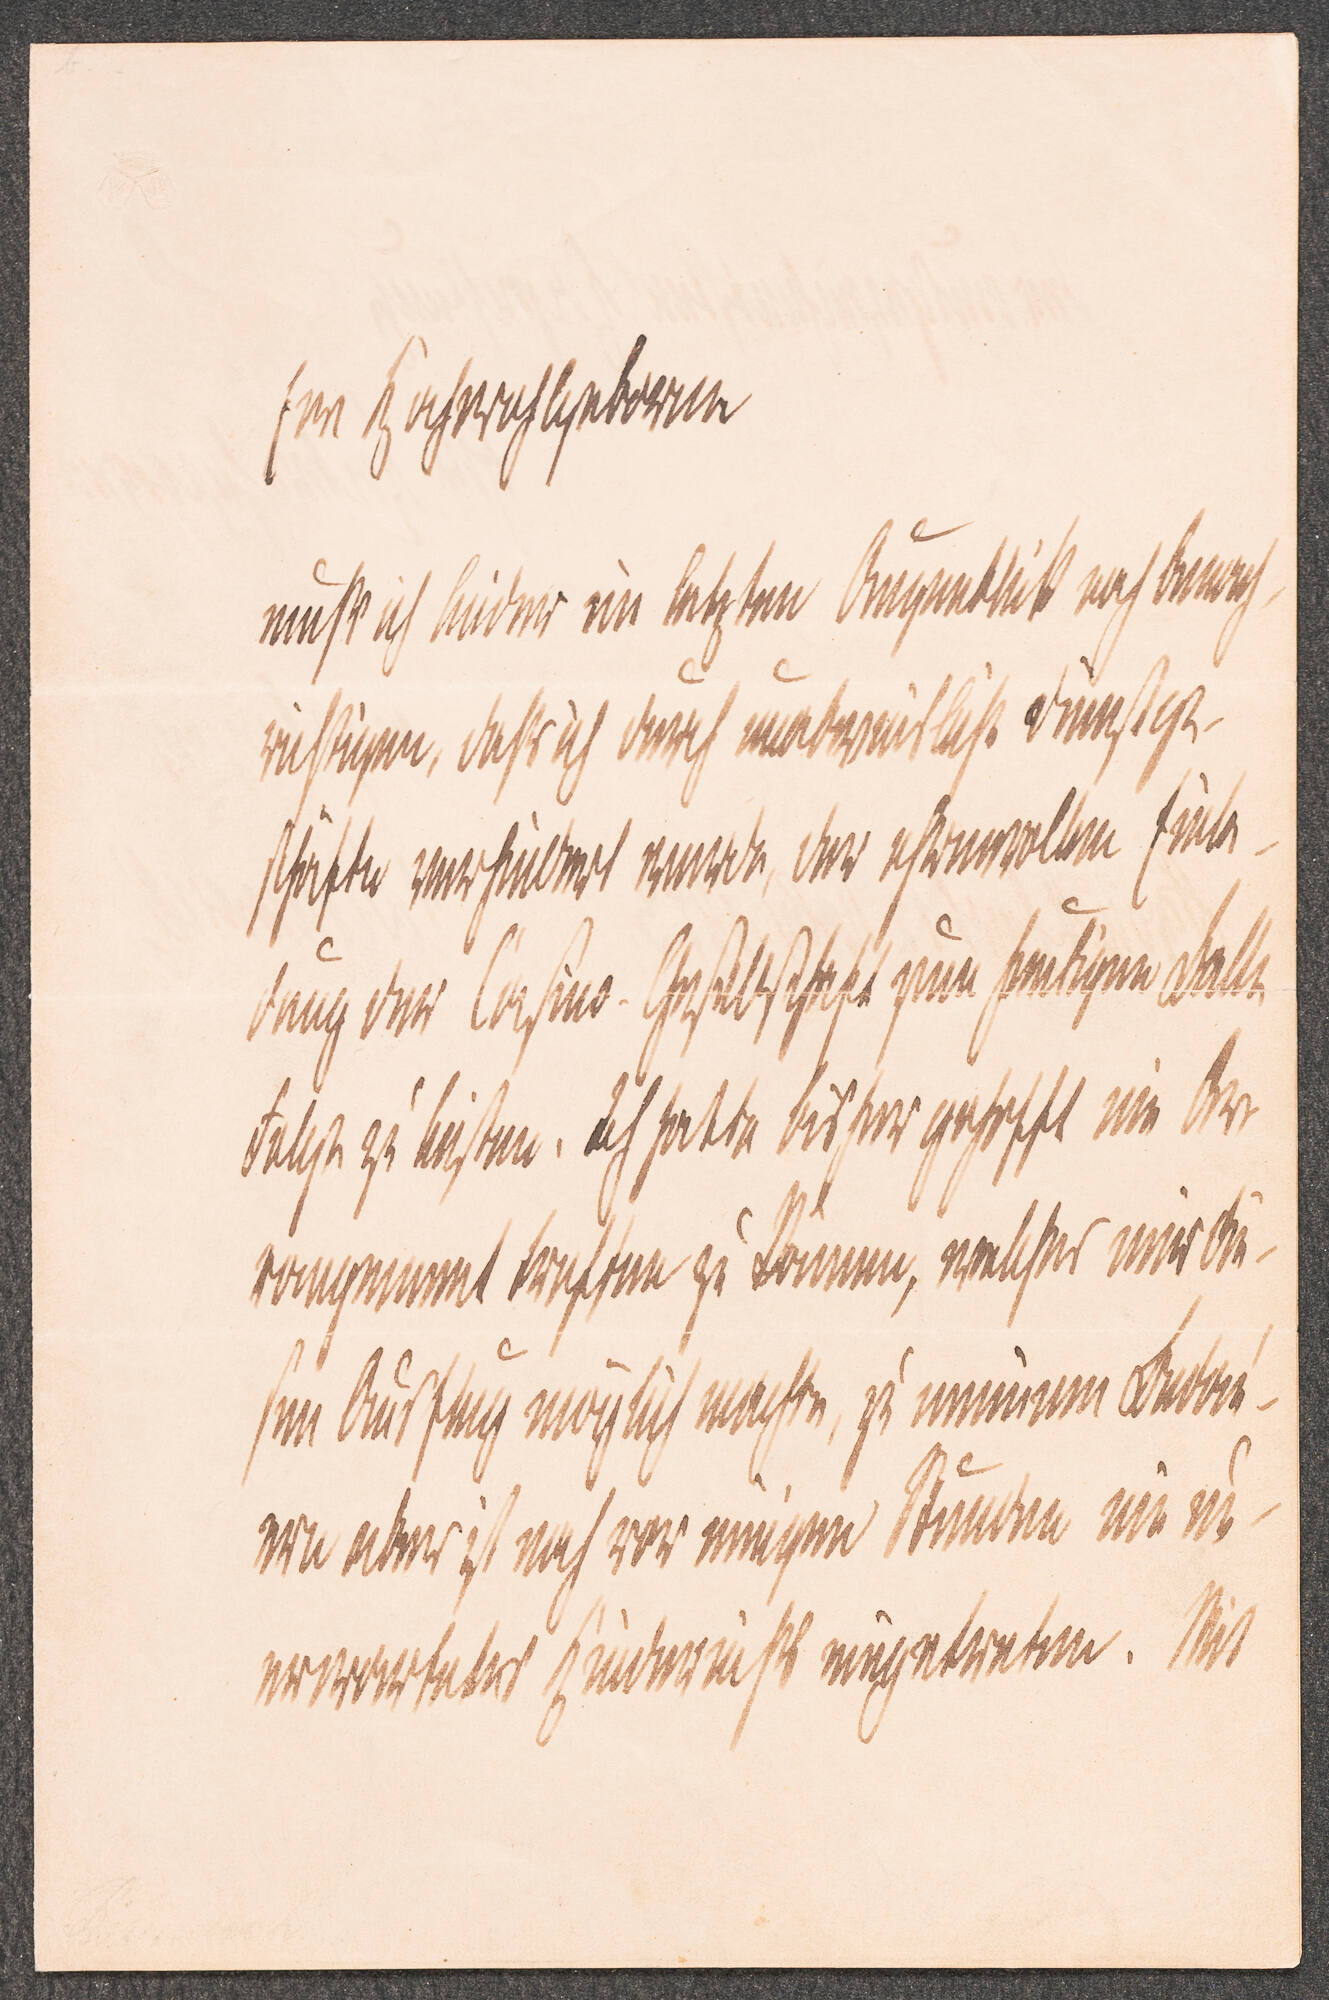 Eure Hochwohlgeboren
muß ich leider im letzten Augenblick noch benach-
richtigen, daß ich durch unabweisliche Dienstge-
schäfte verhindert wurde, der ehrenvollen Einla-
dung der Casino-Gesellschaft zum heutigen Balle
Folge zu leisten. Ich hatte bisher gehofft ein Ar-
rangement treffen zu können, welches mir die-
sen Ausflug möglich machte, zu meinem Bedau-
ern aber ist noch vor einigen Stunden ein un-
erwartetes Hinderniß eingetreten. Mit